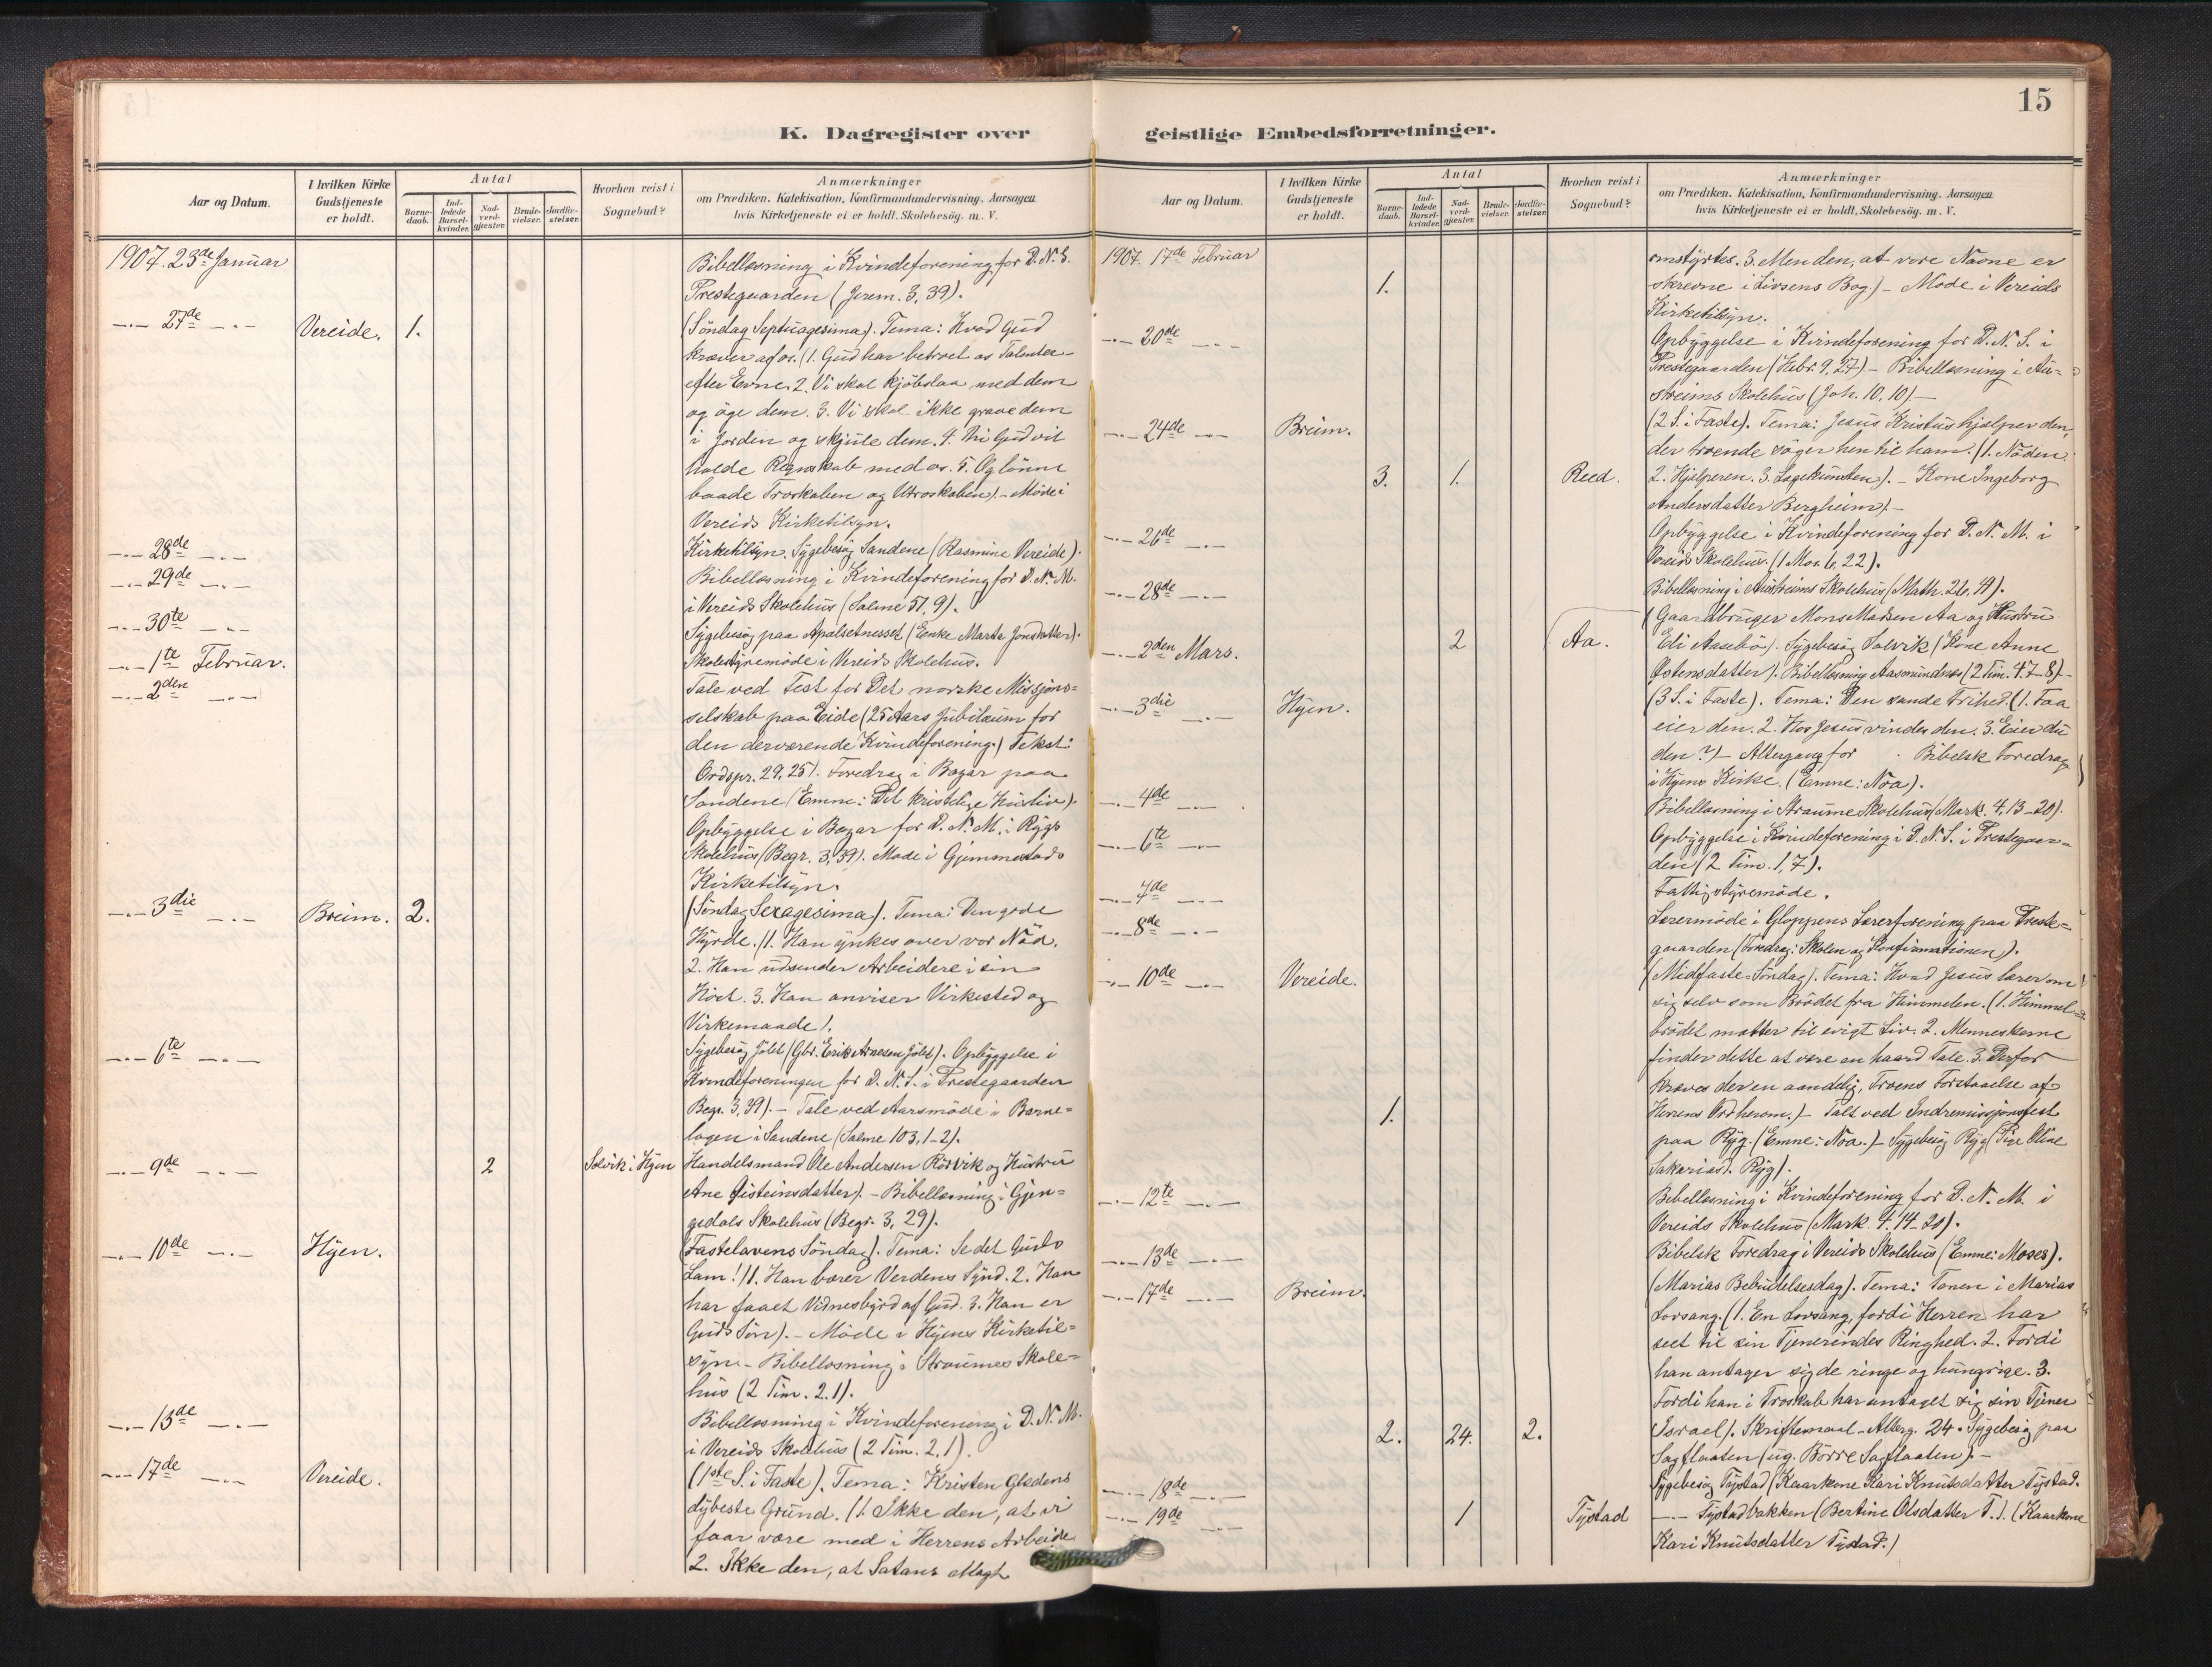 15
K. Dagregister over
geistlige Embedsforretninger.
Aar og Datum.
I hvilken Kirke Gudstjeneste er holdt.
Antal
Barnedaab.
Indledede Barselkvinder.
Nadverdgjæster.
Brudevielser.
Jordfæstelser.
Hvorhen reist i Sognebud?
Anmærkninger
om Prædiken, Katekisation, Konfirmandundervisning, Aarsagen
hvis Kirketjeneste ei er holdt, Skolebesög, m. V.
1907. 23de Januar
Bibellæsning i Kvindeforening for D. N. S.
Prestegaarden (Jerem. 3, 39).
—.— 27de —.— Vereide. 1. (Söndag Septuagesima). Tema: Hvad Gud
kræver af os. (1. Gud har betroet os Talenter
efter Evne. 2. Vi skal kjöbslaa med dem
og öge dem. 3. Vi skal ikke grave dem
i Jorden og skjule dem. 4. Thi Gud vil
holde Regnskab med os. 5. Og lönne
baade Troskaben og Utroskaben). - Möde i
Vereids Kirketilsyn.
—.— 28de —.— Kirketilsyn. Sygebesög Sandene (Rasmine Vereide).
—.— 29de —.— Bibellæsning i Kvindeforening for D. N. M.
i Vereids Skolehus (Salme 51, 9).
—.— 30te —.— Sygebesög paa Apalsetnesset (Enke Marta Jonsdatter).
—.— 1te Februar. Skolestyremöde i Vereids Skolehus.
—.— 2den —.— Tale ved Fest for Det norske Missjons=
selskab paa Eide (25 Aars Jubilæum for
den derværende Kvindeforening.) Tekst:
Ordspr. 29, 25). Foredrag i Bazar paa
Sandene (Emne: Det kristelige Husliv).
Opbyggelse i Bazar for D. N. M. i Rygs
Skolehus (Begr. 3, 39). Möde i Gjemmestads
Kirketilsyn.
—.— 3die —.— Breim. 2. (Söndag Sexagesima). Tema: Den gode
Hyrde. (1. Han ynkes over vor Nöd.
2. Han udsender Arbeidere i sin
Höst. 3. Han anviser Virkested og
Virkemaade).
—.— 6te —.— Sygebesög Jölet (Gbr. Erik Arnesen Jölet). Opbyggelse i
Kvindeforeningen for D. N. S. i Prestegaarden
Begr. 3, 39). - Tale ved Aarsmöde i Barne=
lagen i Sandene (Salme 103, 1-2).
—.— 9de —.— 2 Solvik i Hyen Handelsmand Ole Andersen Rörvik og Hustru
Ane Gisteinsdatter). - Bibellæsning i Gjen=
gedals Skolehus (Begr. 3, 29).
—.— 10de —.— Hyen. (Fastelavens Söndag). Tema: Se det Guds
Lam! (1. Han bærer Verdens Synd. 2. Han
har faaet Vidnesbyrd af Gud. 3. Han er
Guds Sön). - Möde i Hyens Kirketil=
syn. - Bibellæsning i Straumes Skole=
hus (2 Tim. 2. 1).
—.— 13de —.— Bibellæsning i Kvindeforening i D. N. M.
i Vereids Skolehus (2 Tim. 2. 1).
—.— 17de —.— Vereide. (1ste S. i Faste). Tema: Kristen Glædens
dybeste Grund. (1. Ikke den, at vi
faar være med i Herrens Arbeide
2. Ikke den, at Satans Magt
Aar og Datum.
I hvilken Kirke Gudstjeneste er holdt.
Antal
Barnedaab.
Indledede Barselkvinder.
Nadverdgjæster.
Brudevielser.
Jordfæstelser.
Hvorhen reist i Sognebud?
Anmærkninger
om Prædiken, Katekisation, Konfirmandundervisning, Aarsagen
hvis Kirketjeneste ei er holdt, Skolebesög, m. V.
1907. 17de Februar omstyrtes. 3. Men den, at vore Navne er
1. skrevne i Livsens Bog) - Möde i Vereids
Kirketilsyn.
—.— 20de —.— Opbyggelse i Kvindeforening for D. N. S. i
Prestegaarden (Hebr. 9, 27). - Bibellæsning i Au=
streims Skolehus (Joh. 10, 10) —
—.— 24de —.— Breim. (2 S. i Faste). Tema: Jesus Kristus hjælper den,
der troende söger hen til ham. (1. Nöden.
3. 1. Reed. 2. Hjælperen. 3. Lægekunsten). - Kone Ingeborg
Andersdatter Bergheim). -
—.— 26de —.— Opbyggelse i Kvindeforening for D. N. M. i
Vereids Skolehus. (1 Mos. 6, 22).
—.— 28de —.— Bibellæsning i Austreims Skolehus (Math. 26, 41).
(Gaardbruger Mons Madsen Aa og Hustru
—.— 2den Mars. 2 Aa. Eli Aasebö). Sygebesög Solvik (Kone Anne
Östensdatter). Bibellæsning Aasmundnes (2 Tim. 4. 7-8) -
—.— 3die —.— Hyen. (3 S. i Faste). Tema: Den sande Frihed. (1. Faa
eier den. 2. Hos Jesus vindes den. 3. Eier du
den?) - Altergang for Bibelsk Foredrag
i Hyens Kirke. (Emne: Noa).
—.— 4de —.— Bibellæsning i Straume Skolehus (Mark. 4, 13-20).
—.— 6te —.— Opbyggelse i Kvindeforening i D. N. S. i Prestegaar=
den (2 Tim. 1, 7).
—.— 7de —.— Fattigstyremöde.
—.— 8de —.— Lærermöde i Gloppens Lærerforening paa Preste=
gaarden (Foredrag: Skolen og Konfirmationen).
—.— 10de —.— Vereide. (Midfaste-Söndag). Tema: Hvad Jesus lærer om
sig selv som Brödet fra Himmelen. (1. Himmel=
brödet mætter til evigt Liv. 2. Menneskene
finder dette at være en haard Tale. 3. Derfor
kræves der en aandelig, Troens Forstaaelse af
1. Herrens Ord herom.) - Talt ved Indremissjonsfest
paa Ryg. (Emne: Noa.) - Sygebesög Ryg (Pige Oline
Sakariasd. Ryg).
—.— 12te —.— Bibellæsning i Kvindeforening for D. N. M. i
Vereids Skolehus (Mark. 4. 14-20).
—.— 13de —.— Bibelsk Foredrag i Vereids Skolehus (Emne: Moses).
—.— 17de —.— Breim. (Marias Bebudelsesdag). Tema: Tonen i Marias
Lovsang. (1. En Lovsang, fordi Herren har
seet til sin Tjenerindes Ringhed. 2. Fordi
han antager sig de ringe og hungrige. 3.
Fordi han i Troskab har antaget sig sin Tjener
2. 24. 2. Israel). Skriftemaal - Alterg. 24. Sygebesög paa
Sagflaaten (ug. Börre Sagflaaten). -
—.— 18de —.— Sygebesög Tystad (Kaarkone Kari Knutsdatter Tystad.
—.— 19de —.— 1 Tystad —.— Tystadbakken (Bertine Olsdatter T.). (Kaarkone
Kari Knutsdatter Tystad.)